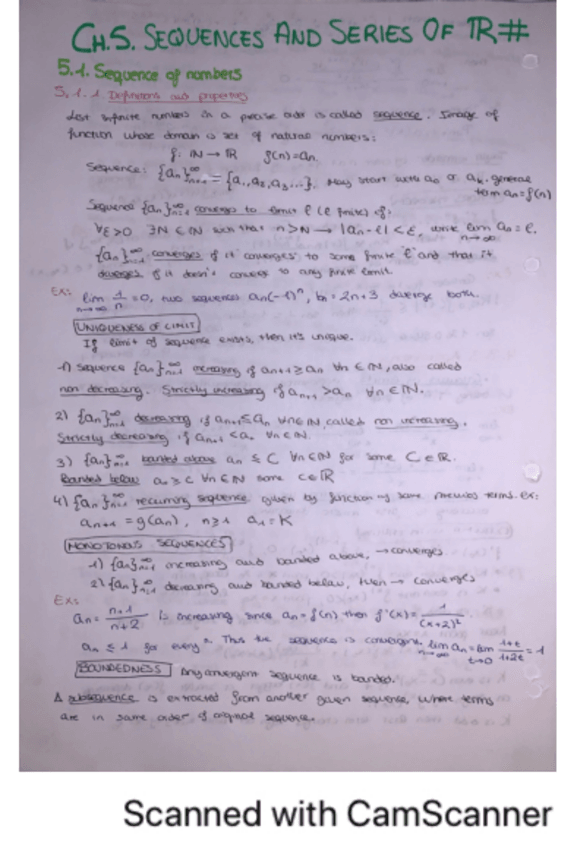 CH.5. SEQUENCES AND SERIES OF IR#
5.1. Sequence of numbers
5.1.1 Definitions and properties
List infinite numbers in a precise order is called sequence. Image of
function whose domain is set of natural numbers:
f: IN → IR f(n)=an
Sequence: {an}∞n=1 = {a1,a2,a3...}. May start with a0 or ak. general
term an=f(n)
Sequence {an}∞n=1 converges to limit ℓ (ℓ finite) if:
∀ε>0 ∃N∈IN such that n>N → |an-ℓ|<ε, write lim n→∞ an=ℓ.
{an}∞n=1 converges if it converges to some finite ℓ and that it
diverges if it doesn't converge to any finite limit.
Ex: lim n→∞ 1/n =0, two sequences an(-1)^n, bn=2n+3 diverge both.
UNIQUENESS OF LIMIT
If limit of sequence exists, then it's unique.
1) sequence {an}∞n=1 increasing if an+1≥an ∀n∈IN, also called
non decreasing. Strictly increasing if an+1>an ∀n∈IN.
2) {an}∞n=1 decreasing if an+1≤an ∀n∈IN, called non increasing.
Strictly decreasing if an+1<an ∀n∈IN
3) {an}∞n=1 banded above an≤C ∀n∈IN for some C∈IR.
Banded below an≥c ∀n∈IN some c∈IR
4) {an}∞n=1 recurring sequence given by function of some previous terms. ex:
an+1=g(an), n≥1 a1=K
MONOTONOUS SEQUENCES
1) {an}∞n=1 increasing and banded above, → converges
2) {an}∞n=1 decreasing and banded below, then → converges
Ex:
an= n+1/n+2 is increasing since an=f(n) then f'(x)= 1/(x+2)²
an≤1 for every n. Thus the sequence is convergent, lim n→∞ an=lim t→0 1+t/1+2t=1
BOUNDEDNESS Any convergent sequence is banded.
A subsequence is extracted from another given sequence, where terms
are in same order of original sequence.
Scanned with CamScanner